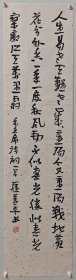 人生易老天难老岁岁重阳今又重阳战地黄
花分外香一年一度秋风劲不似春光胜似春光
寥廓江天万里霜 毛主席诗词一首